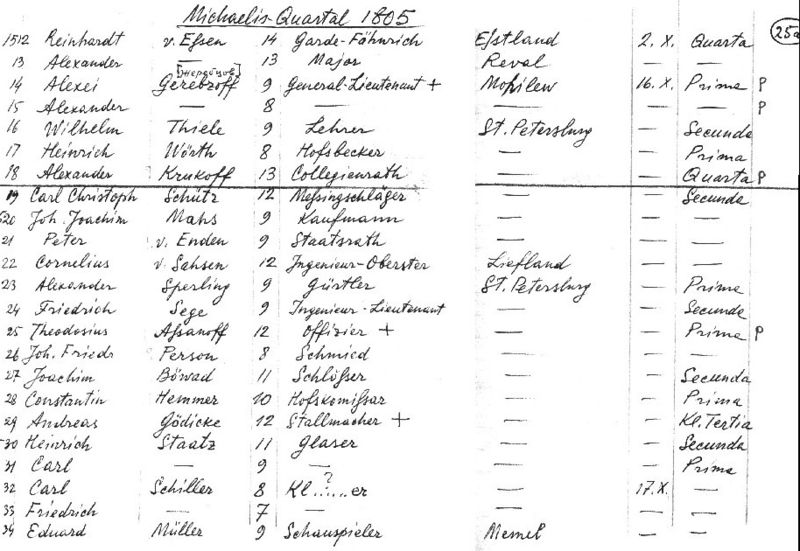 Michaelis-Quartal 1805
25a
1512 Reinhardt v. Eßen 14 Garde-Fähnrich Eſstland 2. X. Quarta
13 Alexander — 13 Major Reval — —
[Жеребцов]
14 Alexei Gerebzoff 9 General-Lieutenant + Mohilew 16. X. Prima P
15 Alexander — 8 — — — P
16 Wilhelm Thiele 9 Lehrer St. Petersburg — Secunda
17 Heinrich Wörth 8 Hofsbecker — — Prima
18 Alexander Krukoff 13 Collegienrath — — Quarta P
19 Carl Christoph Schütz 12 Meßingschläger — — Secunda
520 Joh. Joachim Mahs 9 Kaufmann — — —
21 Peter v. Enden 9 Staatsrath — — —
22 Cornelius v. Sahsen 12 Ingenieur-Oberster Liefland — —
23 Alexander Sperling 9 Gürtler St. Petersburg — Prima
24 Friedrich Sege 9 Ingenieur-Lieutenant — — Secunda
25 Theodosius Aßanoff 12 Offizier + — — Prima P
26 Joh. Friedr Person 8 Schmied — — —
27 Joachim Böwad 11 Schlößer — — Secunda
28 Constantin Hemmer 10 Hofskomißar — — Prima
29 Andreas Gödicke 12 Stallmacher + — — Kl. Tertia
30 Heinrich Staatz 11 Glaser — — Secunda
31 Carl — 9 — — — Prima
?
32 Carl Schiller 8 Kl......er — 17. X. —
33 Friedrich — 7 — — — —
34 Eduard Müller 9 Schauspieler Memel — —